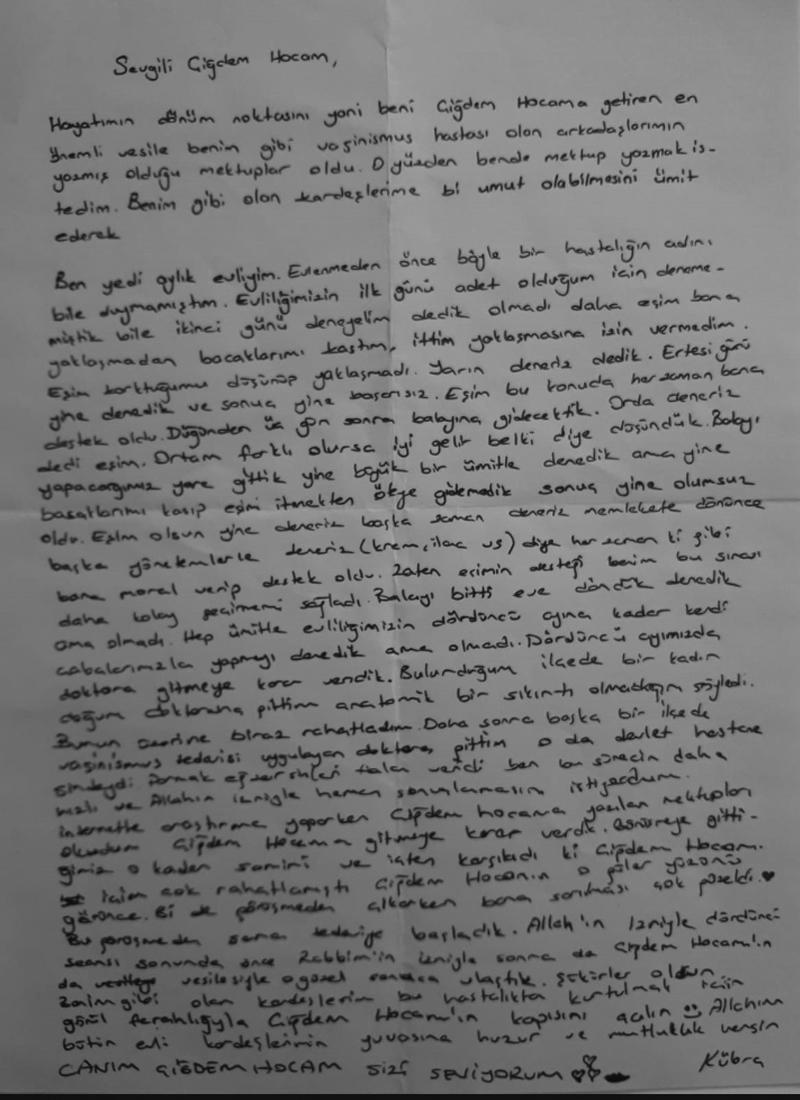 Sevgili Çiğdem Hocam,
Hayatımın dönüm noktasını yani beni Çiğdem Hocama getiren en
önemli vesile benim gibi vaginismus hastası olan arkadaşlarımın
yazmış olduğu mektuplar oldu. O yüzden bende mektup yazmak is-
tedim. Benim gibi olan kardeşlerime bi umut olabilmesini ümit
ederek
Ben yedi aylık evliyim. Evlenmeden önce böyle bir hastalığın adını
bile duymamıştım. Evliliğimizin ilk günü adet olduğum için deneme-
miştik bile ikinci günü deneyelim dedik olmadı daha eşim bana
yaklaşmadan bacaklarımı kastım, ittim yaklaşmasına izin vermedim.
Eşim korktuğumu düşünüp yaklaşmadı. Yarın deneriz dedik. Ertesi günü
yine denedik ve sonuç yine başarısız. Eşim bu konuda her zaman bana
destek oldu. Düğünden üç gün sonra balayına gidecektik. Orda deneriz
dedi eşim. Ortam farklı olursa iyi gelir belki diye düşündük. Balayı
yapacağımız yere gittik yine büyük bir ümitle denedik ama yine
bacaklarımı kasıp eşimi itmekten öteye gidemedik sonuç yine olumsuz
oldu. Eşim olsun yine deneriz başka zaman deneriz memlekete dönünce
başka yöntemlerle deneriz (krem, ilaç vs) diye her zaman ki gibi
bana moral verip destek oldu. Zaten eşimin desteği benim bu sınavı
daha kolay geçirmemi sağladı. Balayı bitti eve döndük denedik
ama olmadı. Hep ümitle evliliğimizin dördüncü ayına kadar kendi
çabalarımızla yapmayı denedik ama olmadı. Dördüncü ayımızda
doktora gitmeye karar verdik. Bulunduğum ilçede bir kadın
doğum doktoruna gittim anatomik bir sıkıntı olmadığını söyledi.
Bunun üzerine biraz rahatladım. Daha sonra başka bir ilçede
vaginismus tedavisi uygulayan doktora gittim o da devlet hastane
sindeydi. Parmak egzersizleri falan verdi ben bu sürecin daha
hızlı ve Allahın izniyle hemen sonuçlanmasını istiyordum.
internette araştırma yaparken Çiğdem hocama yazılan mektupları
okudum Çiğdem Hocama gitmeye karar verdik. Görüşmeye gitti-
ğimiz o kadar samimi ve içten karşıladı ki Çiğdem Hocam.
içim çok rahatlamıştı Çiğdem Hocanın o güler yüzünü
görünce. Bi de görüşmeden çıkarken bana sarılması çok güzeldi. ♥
Bu görüşmeden sonra tedaviye başladık. Allah'ın izniyle dördüncü
seansı sonunda önce Rabbim'in izniyle sonra da Çiğdem Hocam'ın
da vesilesiyle o güzel sonuca ulaştık. Şükürler olsun
gibi olan kardeşlerim bu hastalıkta kurtulmak için
gönül ferahlığıyla Çiğdem Hocam'ın kapısını çalın Allahım
bütün evli kardeşlerimin yuvasına huzur ve mutluluk versin
CANIM ÇİĞDEM HOCAM SİZİ SEVİYORUM Kübra